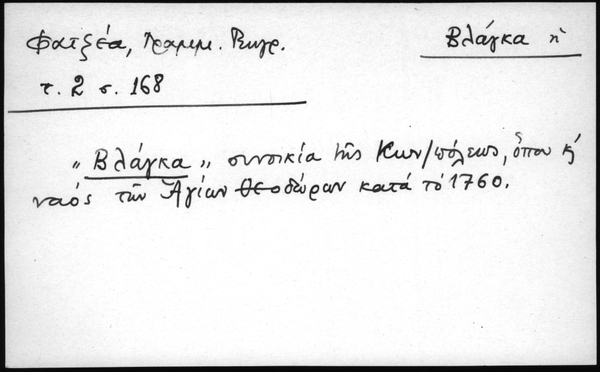 Φατζέα, Γραμμ. Βυζ.
Βλάγκα ἡ
τ. 2 σ. 168
"Βλάγκα" συνοικία τῆς Κων/πόλεως, ὅπου κ'
ναός τῶν Ἁγίων Θεοδώρων κατά τό 1760.